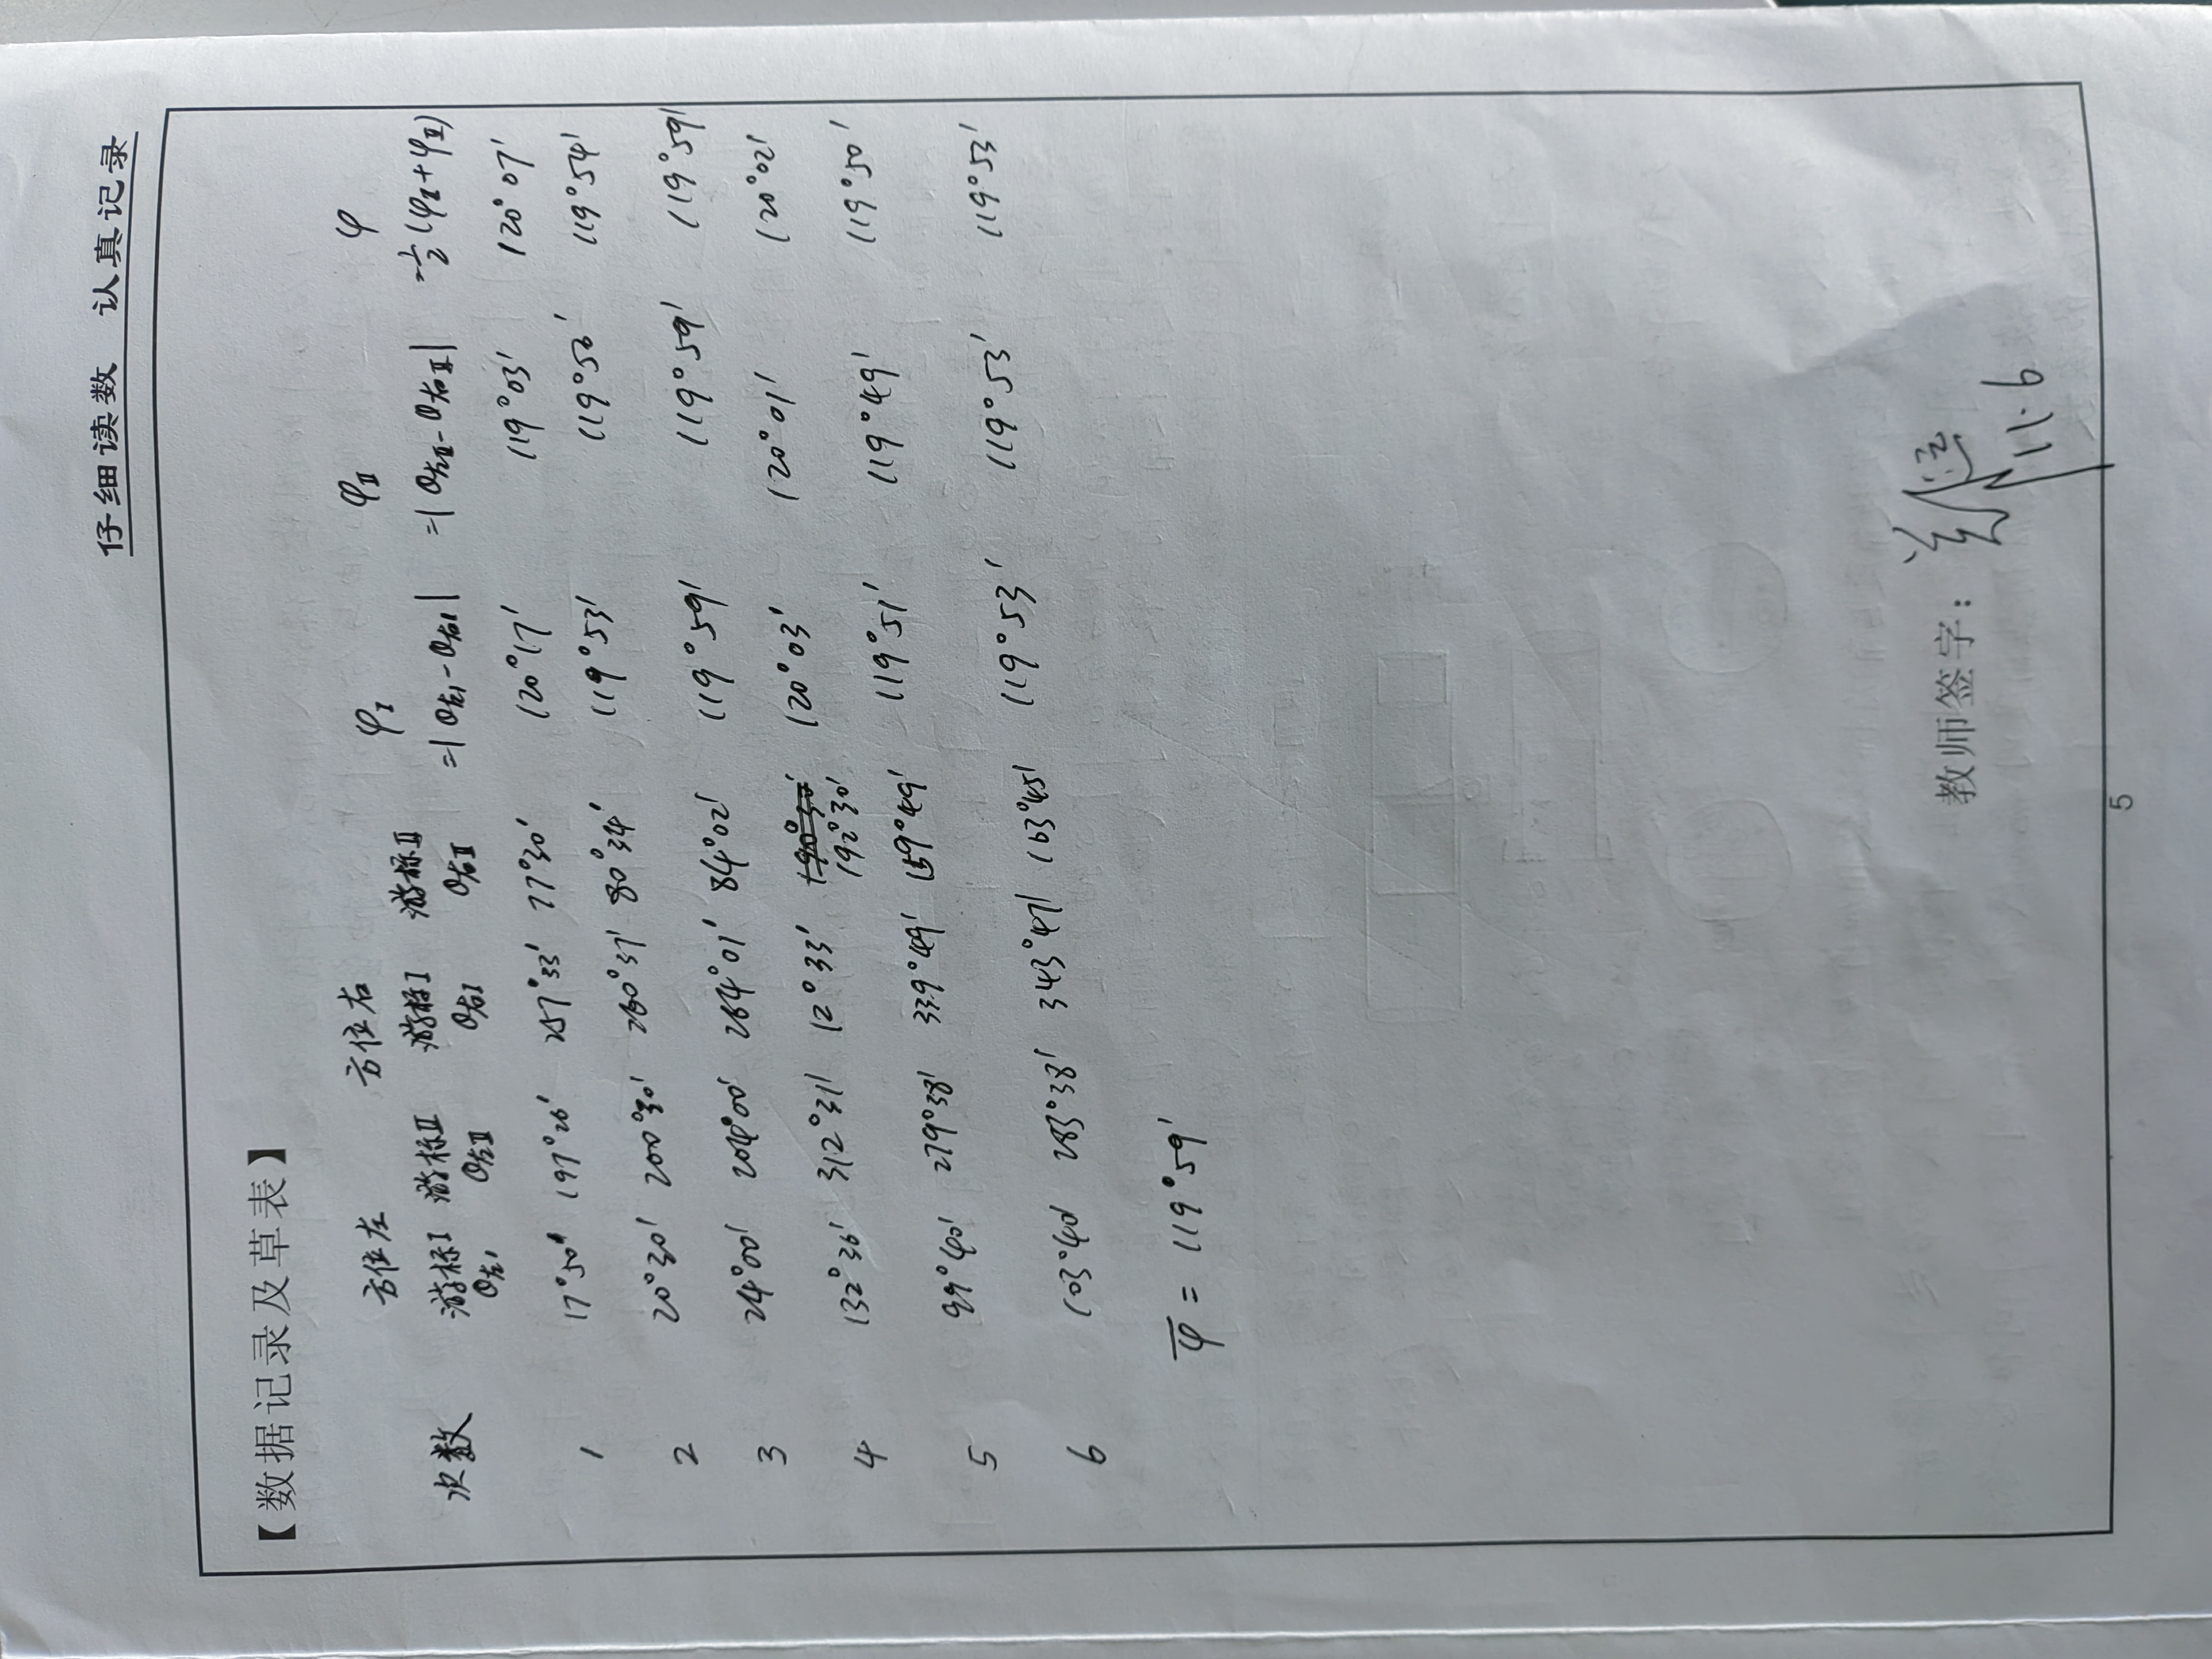 仔细读数 认真记录
【数据记录及草表】
方位左 方位右 φI φII φ
次数 游标I 游标II 游标I 游标II =|θ左I-θ右I| =|θ左II-θ右II| ½(φI+φII)
θ左I θ左II θ右I θ右II
1 17°50′ 197°26′ 257°33′ 77°30′ 120°17′ 119°03′ 120°07′
2 20°30′ 200°30′ 260°37′ 80°34′ 119°53′ 119°56′ 119°54′
3 24°00′ 204°00′ 264°01′ 84°02′ 119°59′ 119°59′ 119°59′
4 132°36′ 312°31′ 12°33′ 192°30′ 120°03′ 120°01′ 120°02′
5 99°40′ 279°38′ 339°49′ 159°49′ 119°51′ 119°49′ 119°50′
6 103°40′ 283°38′ 343°47′ 163°45′ 119°53′ 119°53′ 119°53′
φ̅ = 119°59′
教师签字:
11.6
5